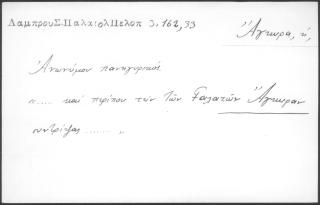 Λαμπρου Σ. Παλαιολ Πελοπ 3, 162, 33
Ἄγκυρα, ἡ,
Ἀνωνύμου πανηγυρικός
"..... καὶ περίπου τὴν τῶν Γαλατῶν Ἄγκυραν
συντρίψας ........ "